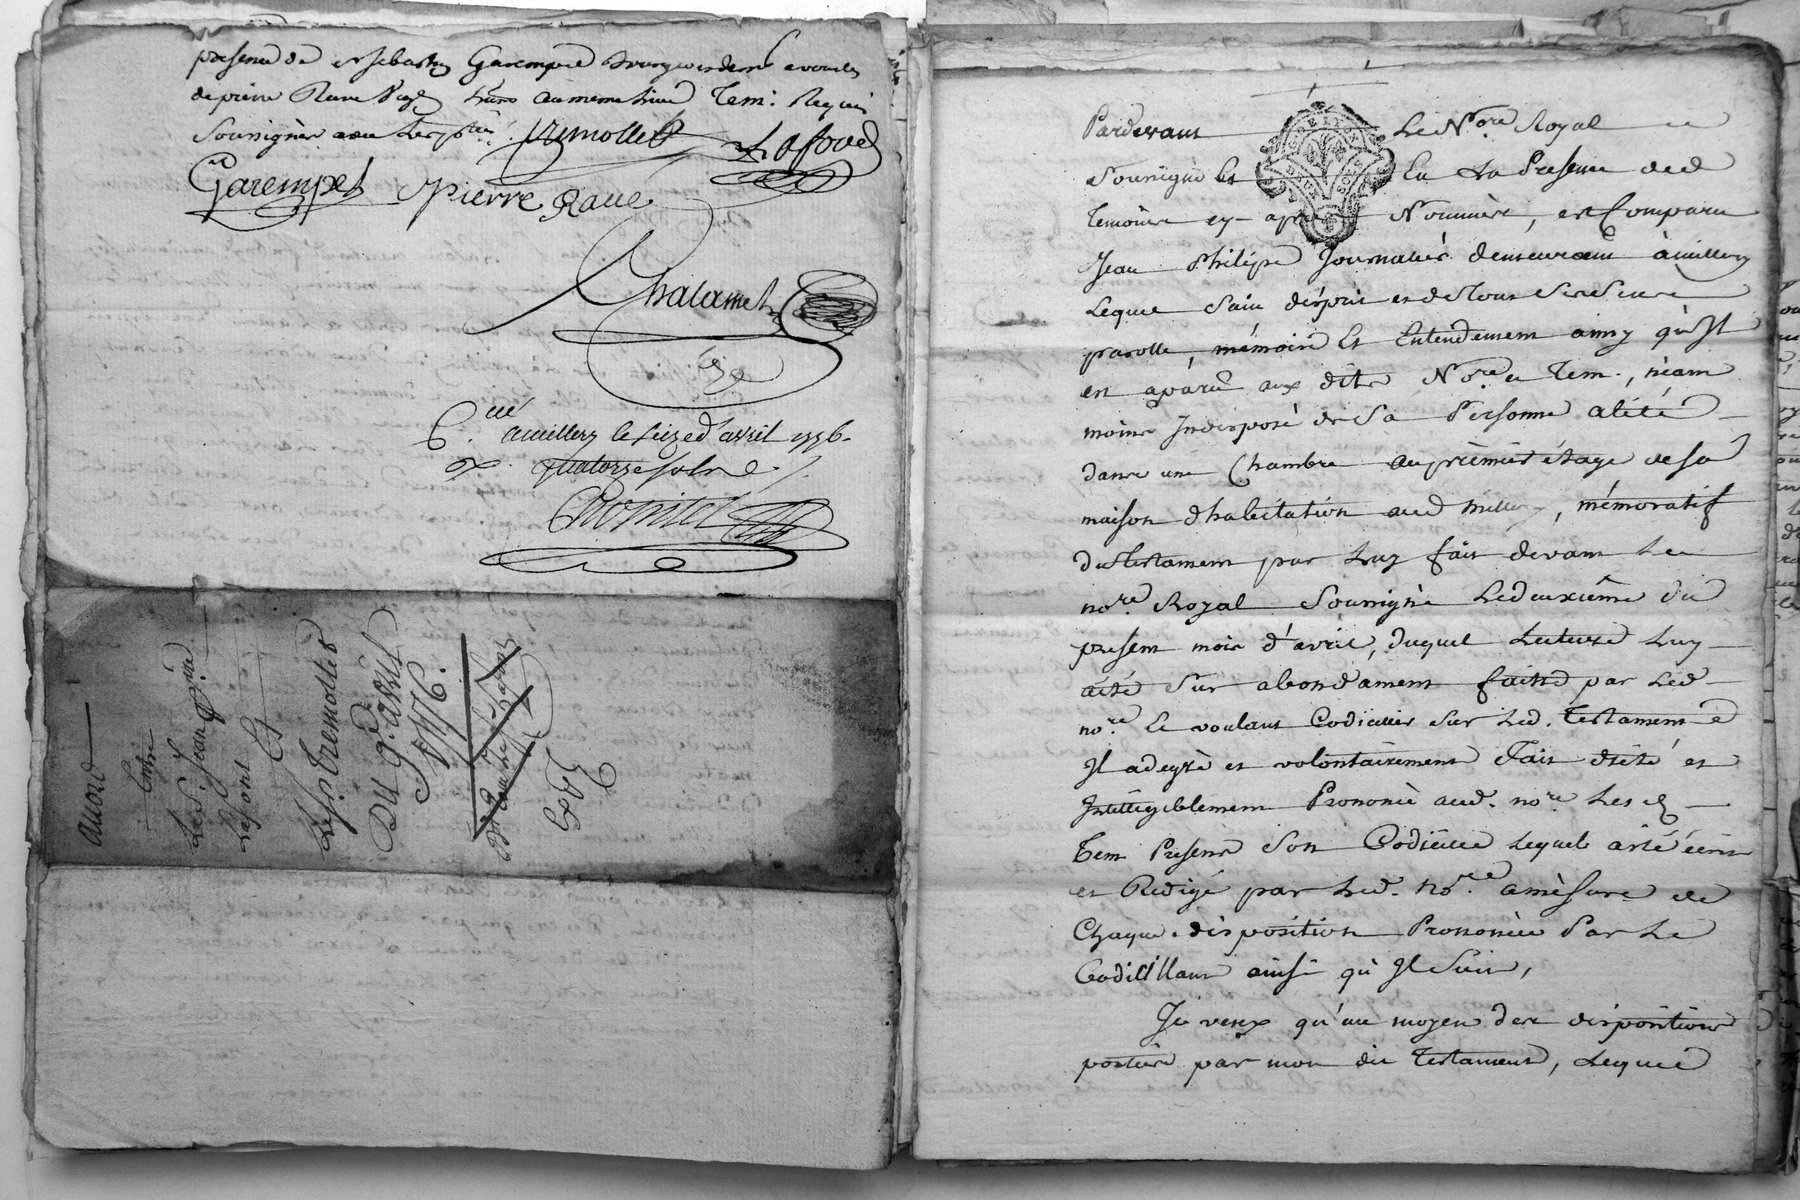 presence de Sr Sebastien Garempel Bourgeois avoués
de pierre Rave au meme lieu Tem: Requis
Soussignés avec les parties. Tremollet Lafond
Garempel Pierre Rave
Chalamel
C.llé amillery le seize d'avril 1776.
quatorze sols
Accord
Entre
Le Sr. Jean
Lafont
Et
Le Sr. Tremollet
Du 9e avril
1776.
Pardevant Le Nore Royal
Soussigné Et En La Presence des
Temoins cy-apres Nommés, est Comparu
Jean Philipe Journalier demeurant à millery
Lequel Sain d'esprit et de tous Ses Sens
parolle, mémoire Et Entendement ainsy qu'Il
est aparu aux dits Nore et Tem., néam
moins Indisposé de Sa Personne alité
dans une Chambre au prémier étage de Sa
maison d'habitation aud millery, mémoratif
du Testament par Luy fait devant Le
nore Royal Soussigné Le deuxième du
present mois d'avril, duquel Lecture Luy
a été Sur abondament faitte par Led.
nore Et voulant Codiciller sur Led. Testament
Il a de gré et volontairement Fait dicté et
Intelligiblement Prononcé aud. nore Les d.
Tem Presents Son Codicille Lequel a été écrit
et Redigé par Led. nore a mésure de
Chaque disposition Prononcée Par Le
Codicillant ainsi qu'Il Suit,
Je veux qu'au moyen des dispositions
portées par mon dit Testament, Lequel